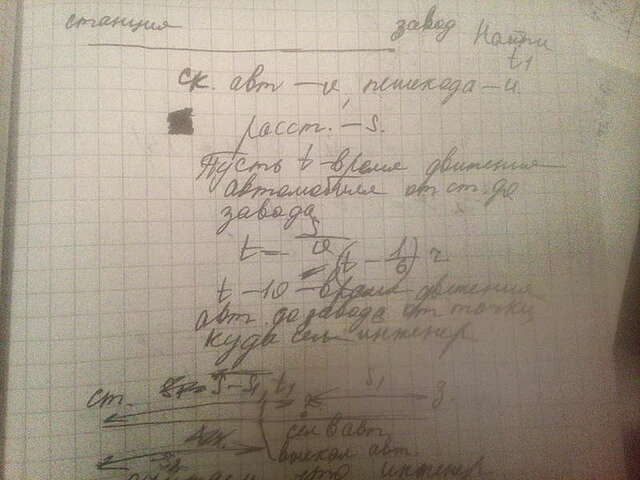 станция завод Найти
t₁
ск. авт — v, пешехода — u.
расст. — S.
Пусть t — время движения
автомобиля от ст. до
завода
t — S/v (t − 1/6) ч
t − 10 — время движения
авт. до завода от точки,
куда сел инженер
ст. S − S₁ t₁ S₁ з.
сел в авт
выехал авт.
инженер